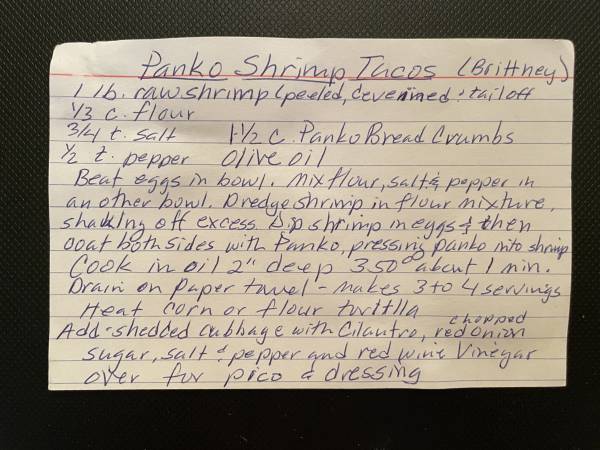 Panko Shrimp Tacos (Brittney)
1 lb. raw shrimp (peeled, deveined & tail off
1/3 c. flour
3/4 t. salt 1-1/2 c. Panko Bread Crumbs
1/2 t. pepper olive oil
Beat eggs in bowl. Mix flour, salt & pepper in
an other bowl. Dredge shrimp in flour mixture,
shaking off excess. Dip shrimp in eggs & then
coat both sides with Panko, pressing panko into shrimp
Cook in oil 2" deep 350° about 1 min.
Drain on paper towel - makes 3 to 4 servings
Heat corn or flour tortilla
Add-shedded cabbage with Cilantro, chopped red onion
sugar, salt & pepper and red wine Vinegar
over for pico & dressing